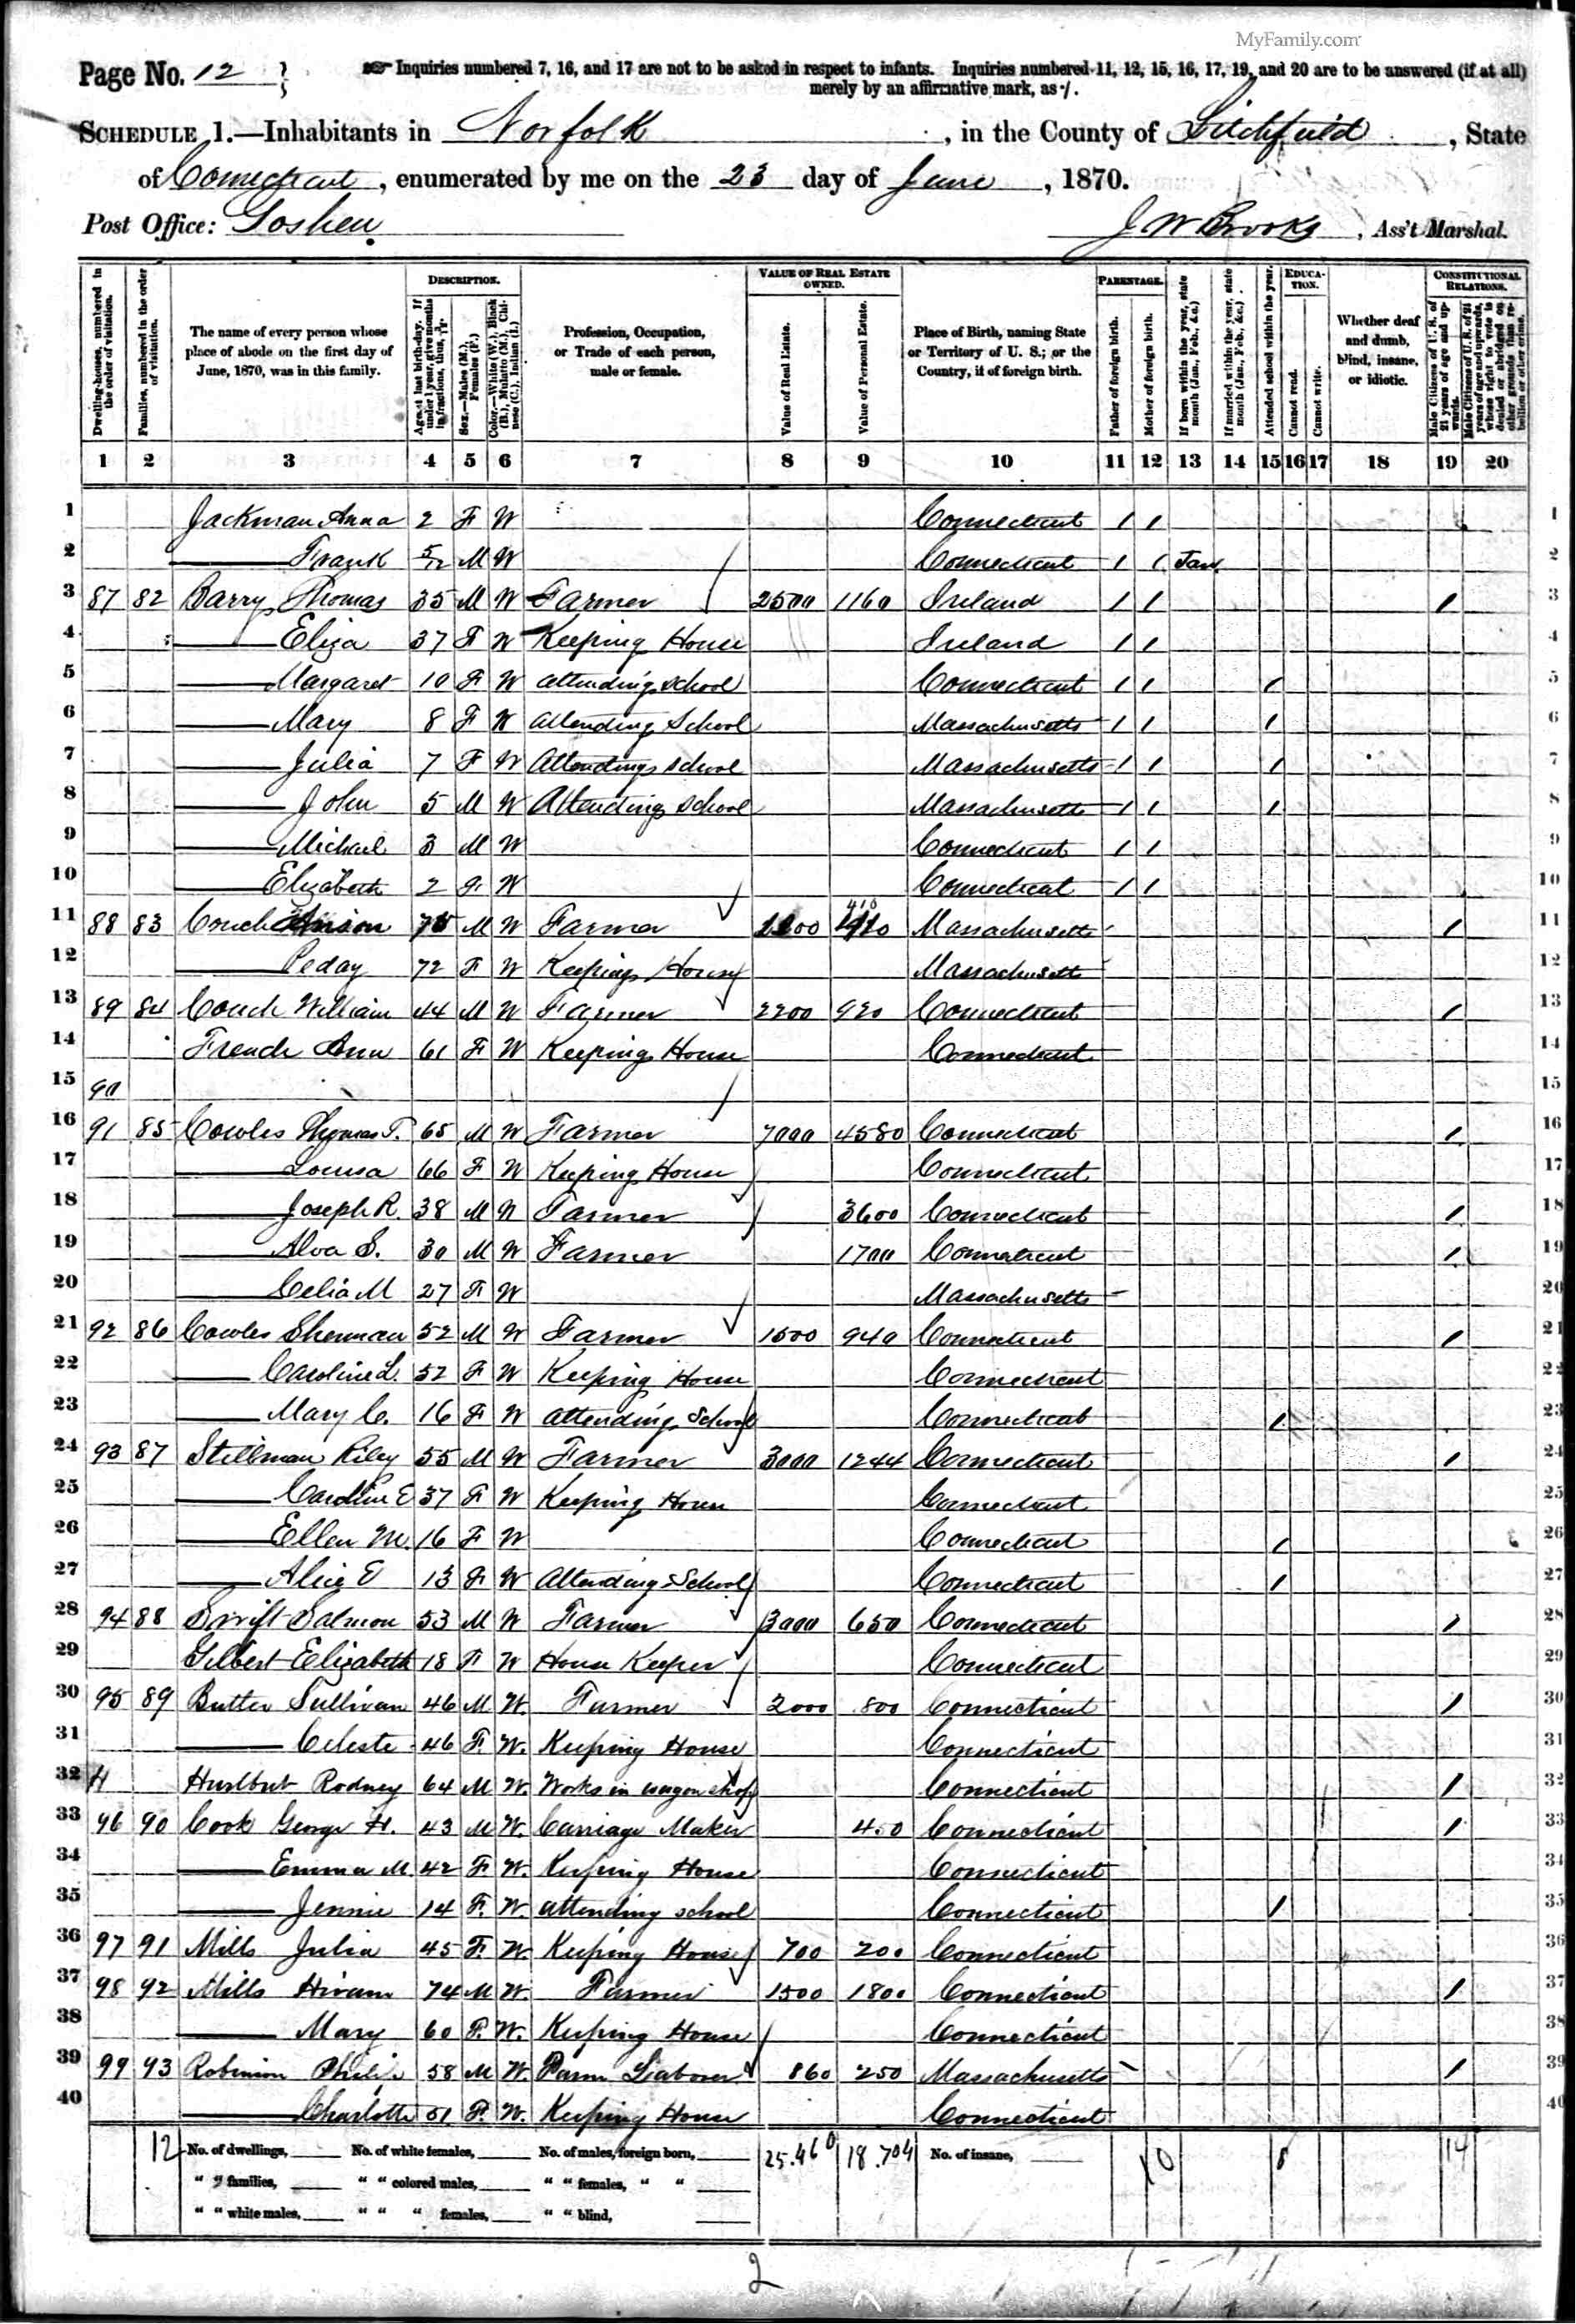 MyFamily.com
Page No. 12
☞ Inquiries numbered 7, 16, and 17 are not to be asked in respect to infants. Inquiries numbered 11, 12, 15, 16, 17, 19, and 20 are to be answered (if at all)
merely by an affirmative mark, as /.
SCHEDULE 1.—Inhabitants in Norfolk, in the County of Litchfield, State
of Connecticut, enumerated by me on the 23 day of June, 1870.
Post Office: Goshen
J W Brooks, Ass't Marshal.
Dwelling-houses, numbered in the order of visitation.
Families, numbered in the order of visitation.
The name of every person whose place of abode on the first day of June, 1870, was in this family.
DESCRIPTION.
Age at last birth-day. If under 1 year, give months in fractions, thus, 3/12.
Sex.—Males (M.), Females (F.)
Color.—White (W.), Black (B.), Mulatto (M.), Chinese (C.), Indian (I.)
Profession, Occupation, or Trade of each person, male or female.
VALUE OF REAL ESTATE OWNED.
Value of Real Estate.
Value of Personal Estate.
Place of Birth, naming State or Territory of U. S.; or the Country, if of foreign birth.
PARENTAGE.
Father of foreign birth.
Mother of foreign birth.
If born within the year, state month (Jan., Feb., &c.)
If married within the year, state month (Jan., Feb., &c.)
Attended school within the year.
EDUCATION.
Cannot read.
Cannot write.
Whether deaf and dumb, blind, insane, or idiotic.
CONSTITUTIONAL RELATIONS.
Male Citizens of U. S. of 21 years of age and upwards.
Male Citizens of U. S. of 21 years of age and upwards, whose right to vote is denied or abridged on other grounds than rebellion or other crime.
1 2 3 4 5 6 7 8 9 10 11 12 13 14 15 16 17 18 19 20
1 Jackman Anna 2 F W Connecticut / / 1
2 —— Frank 5/12 M W Connecticut / / Jan. 2
3 87 82 Barry Thomas 35 M W Farmer 2500 1160 Ireland / / / 3
4 —— Eliza 37 F W Keeping House Ireland / / 4
5 —— Margaret 10 F W attending school Connecticut / / / 5
6 —— Mary 8 F W attending School Massachusetts / / / 6
7 —— Julia 7 F W Attending school Massachusetts / / / 7
8 —— John 5 M W Attending school Massachusetts / / / 8
9 —— Michael 3 M W Connecticut / / 9
10 —— Elizabeth 2 F W Connecticut / / 10
11 88 83 Couch 75 M W Farmer 410 Massachusetts / 11
12 —— 72 F W Keeping House Massachusetts 12
13 89 84 Couch William 44 M W Farmer 2200 920 Connecticut / 13
14 French Ann 61 F W Keeping House Connecticut 14
15 90 15
16 91 85 Cowles Thomas T. 65 M W Farmer 7000 4580 Connecticut / 16
17 —— Louisa 66 F W Keeping House Connecticut 17
18 —— Joseph R. 38 M W Farmer 3600 Connecticut / 18
19 —— Alva S. 30 M W Farmer 1700 Connecticut / 19
20 —— Celia M 27 F W Massachusetts 20
21 92 86 Cowles Sherman 52 M W Farmer 1500 940 Connecticut / 21
22 —— Caroline L. 52 F W Keeping House Connecticut 22
23 —— Mary C. 16 F W attending School Connecticut / 23
24 93 87 Stillman Riley 55 M W Farmer 3000 1244 Connecticut / 24
25 —— Caroline E 37 F W Keeping House Connecticut 25
26 —— Ellen M. 16 F W Connecticut / 26
27 —— Alice E 13 F W Attending School Connecticut / 27
28 94 88 Swift Salmon 53 M W Farmer 3000 650 Connecticut / 28
29 Gilbert Elizabeth 18 F W House Keeper Connecticut 29
30 95 89 Butler Sullivan 46 M W. Farmer 2000 800 Connecticut / 30
31 —— Celeste 46 F. W. Keeping House Connecticut 31
32 H Hurlbut Rodney 64 M W. Works in wagon shop Connecticut / 32
33 96 90 Cook George H. 43 M W. Carriage Maker 450 Connecticut / 33
34 —— Emma M. 42 F. W. Keeping House Connecticut 34
35 —— Jennie 14 F. W. attending school Connecticut / 35
36 97 91 Mills Julia 45 F. W. Keeping House 700 200 Connecticut 36
37 98 92 Mills Hiram 74 M W. Farmer 1500 1800 Connecticut / 37
38 —— Mary 60 F. W. Keeping House Connecticut 38
39 99 93 Robinson 58 M W. Farm Laborer 860 250 Massachusetts / 39
40 —— Charlotte 51 F. W. Keeping House Connecticut 40
12 No. of dwellings, No. of white females, No. of males, foreign born, 25.460 18.704 No. of insane, 10 8 14
" " families, " " colored males, " " females, " "
" " white males, " " " females, " " blind,
2